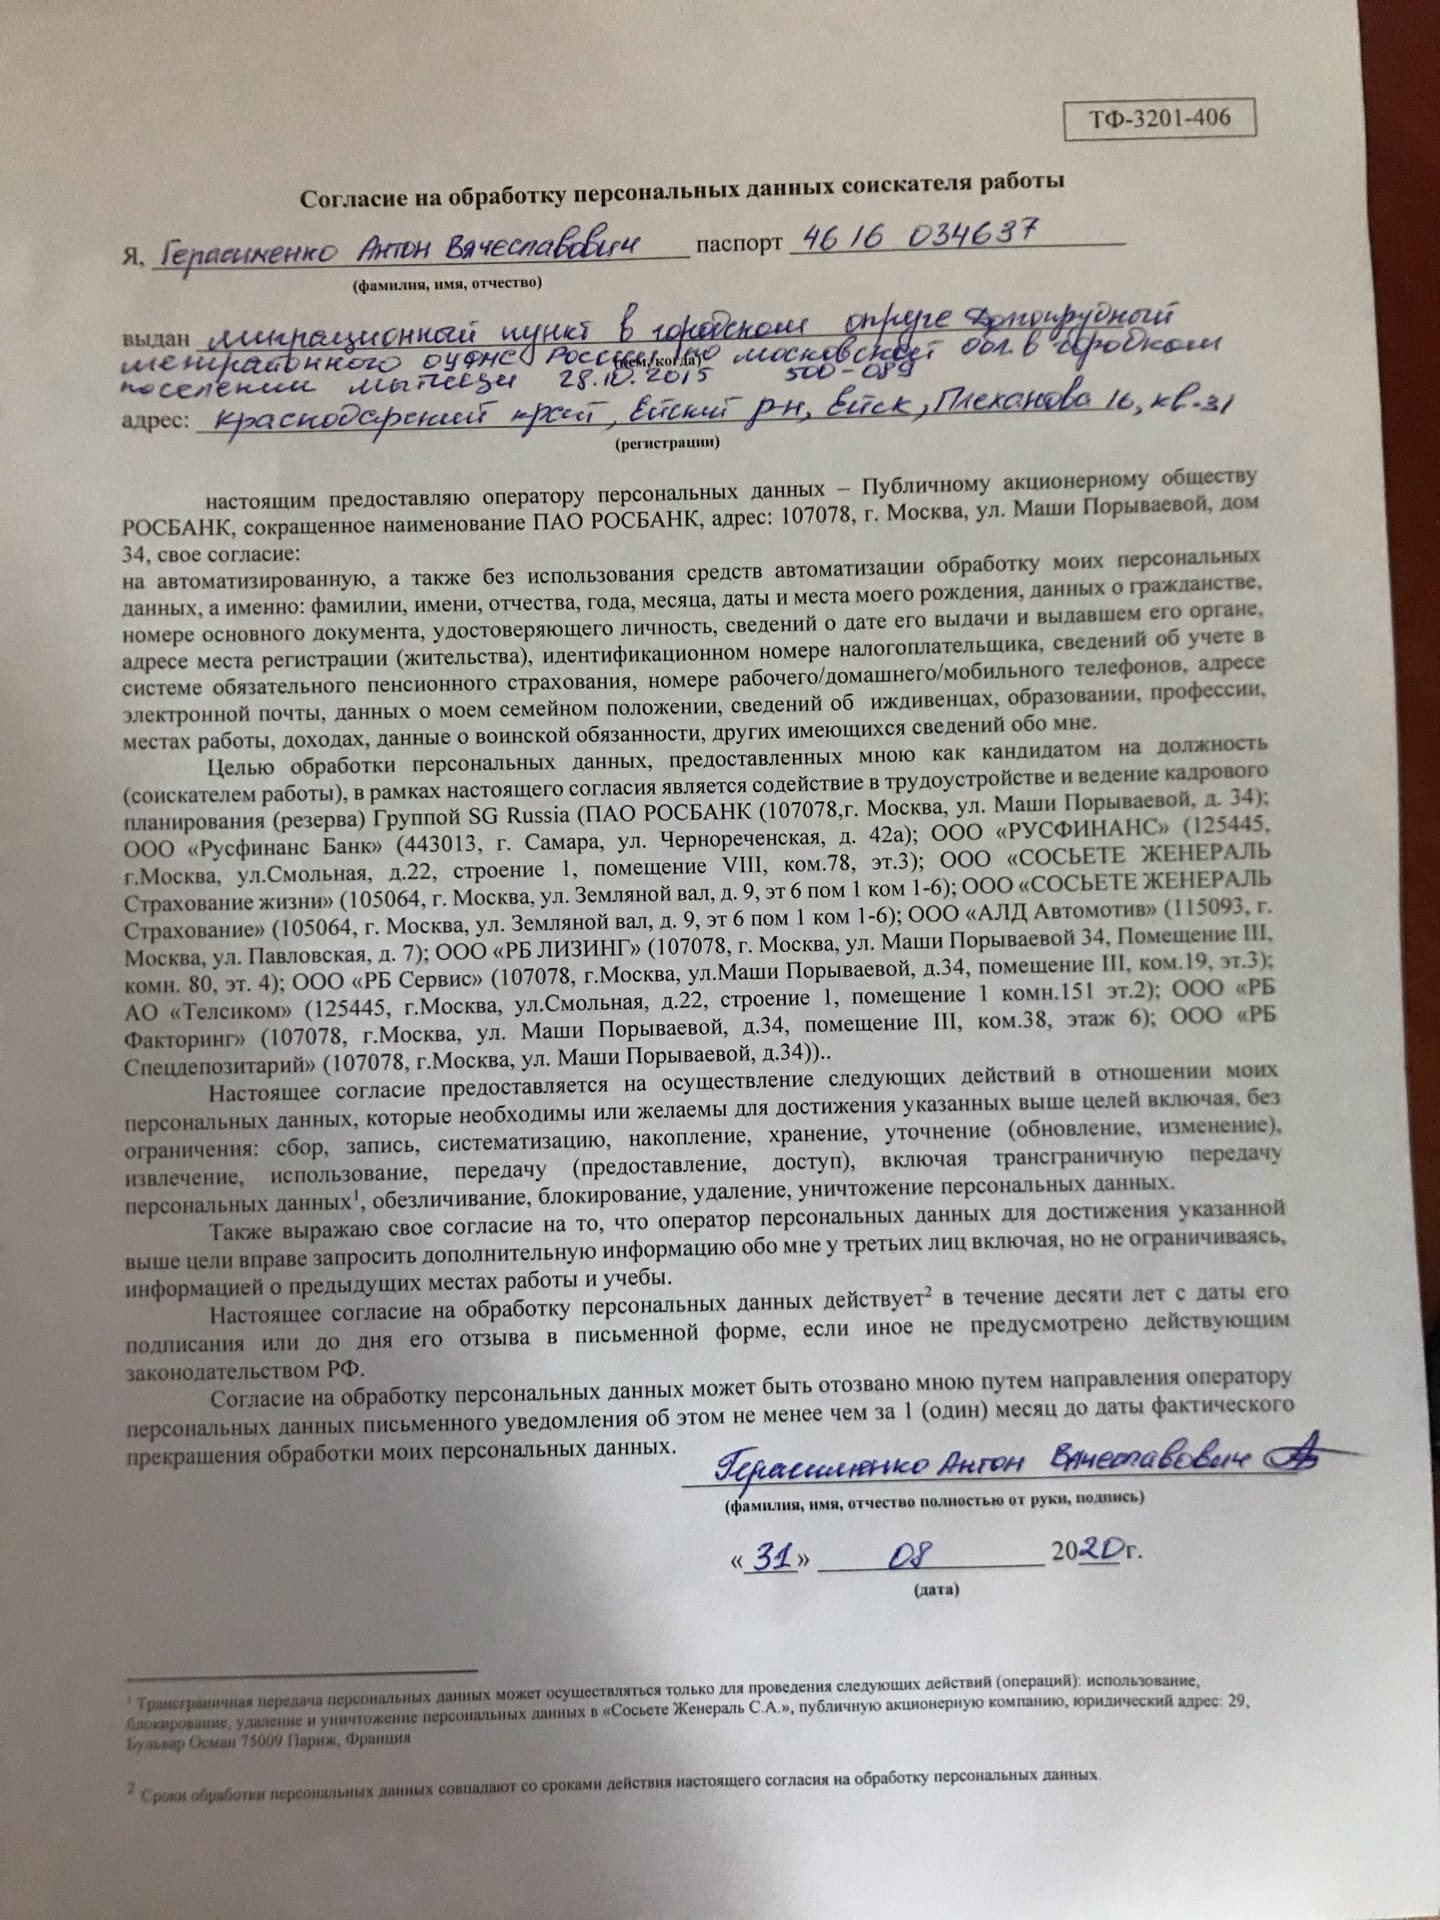 ТФ-3201-406
Согласие на обработку персональных данных соискателя работы
Я, Герасименко Антон Вячеславович паспорт 4616 034637
(фамилия, имя, отчество)
выдан миграционный пункт в городском округе Долгопрудный
(кем, когда)
межрайонного ОУФМС России по московской обл. в городском
поселении мытищи 28.10.2015 500-089
адрес: краснодарский край, Ейский р-н, Ейск, Плеханова 16, кв.31
(регистрации)
настоящим предоставляю оператору персональных данных – Публичному акционерному обществу
РОСБАНК, сокращенное наименование ПАО РОСБАНК, адрес: 107078, г. Москва, ул. Маши Порываевой, дом
34, свое согласие:
на автоматизированную, а также без использования средств автоматизации обработку моих персональных
данных, а именно: фамилии, имени, отчества, года, месяца, даты и места моего рождения, данных о гражданстве,
номере основного документа, удостоверяющего личность, сведений о дате его выдачи и выдавшем его органе,
адресе места регистрации (жительства), идентификационном номере налогоплательщика, сведений об учете в
системе обязательного пенсионного страхования, номере рабочего/домашнего/мобильного телефонов, адресе
электронной почты, данных о моем семейном положении, сведений об иждивенцах, образовании, профессии,
местах работы, доходах, данные о воинской обязанности, других имеющихся сведений обо мне.
Целью обработки персональных данных, предоставленных мною как кандидатом на должность
(соискателем работы), в рамках настоящего согласия является содействие в трудоустройстве и ведение кадрового
планирования (резерва) Группой SG Russia (ПАО РОСБАНК (107078,г. Москва, ул. Маши Порываевой, д. 34);
ООО «Русфинанс Банк» (443013, г. Самара, ул. Чернореченская, д. 42а); ООО «РУСФИНАНС» (125445,
г.Москва, ул.Смольная, д.22, строение 1, помещение VIII, ком.78, эт.3); ООО «СОСЬЕТЕ ЖЕНЕРАЛЬ
Страхование жизни» (105064, г. Москва, ул. Земляной вал, д. 9, эт 6 пом 1 ком 1-6); ООО «СОСЬЕТЕ ЖЕНЕРАЛЬ
Страхование» (105064, г. Москва, ул. Земляной вал, д. 9, эт 6 пом 1 ком 1-6); ООО «АЛД Автомотив» (115093, г.
Москва, ул. Павловская, д. 7); ООО «РБ ЛИЗИНГ» (107078, г. Москва, ул. Маши Порываевой 34, Помещение III,
комн. 80, эт. 4); ООО «РБ Сервис» (107078, г.Москва, ул.Маши Порываевой, д.34, помещение III, ком.19, эт.3);
АО «Телсиком» (125445, г.Москва, ул.Смольная, д.22, строение 1, помещение 1 комн.151 эт.2); ООО «РБ
Факторинг» (107078, г.Москва, ул. Маши Порываевой, д.34, помещение III, ком.38, этаж 6); ООО «РБ
Спецдепозитарий» (107078, г.Москва, ул. Маши Порываевой, д.34))..
Настоящее согласие предоставляется на осуществление следующих действий в отношении моих
персональных данных, которые необходимы или желаемы для достижения указанных выше целей включая, без
ограничения: сбор, запись, систематизацию, накопление, хранение, уточнение (обновление, изменение),
извлечение, использование, передачу (предоставление, доступ), включая трансграничную передачу
персональных данных¹, обезличивание, блокирование, удаление, уничтожение персональных данных.
Также выражаю свое согласие на то, что оператор персональных данных для достижения указанной
выше цели вправе запросить дополнительную информацию обо мне у третьих лиц включая, но не ограничиваясь,
информацией о предыдущих местах работы и учебы.
Настоящее согласие на обработку персональных данных действует² в течение десяти лет с даты его
подписания или до дня его отзыва в письменной форме, если иное не предусмотрено действующим
законодательством РФ.
Согласие на обработку персональных данных может быть отозвано мною путем направления оператору
персональных данных письменного уведомления об этом не менее чем за 1 (один) месяц до даты фактического
прекращения обработки моих персональных данных.
Герасименко Антон Вячеславович
(фамилия, имя, отчество полностью от руки, подпись)
«31» 08 2020г.
(дата)
¹ Трансграничная передача персональных данных может осуществляться только для проведения следующих действий (операций): использование,
блокирование, удаление и уничтожение персональных данных в «Сосьете Женераль С.А.», публичную акционерную компанию, юридический адрес: 29,
Бульвар Осман 75009 Париж, Франция
² Сроки обработки персональных данных совпадают со сроками действия настоящего согласия на обработку персональных данных.